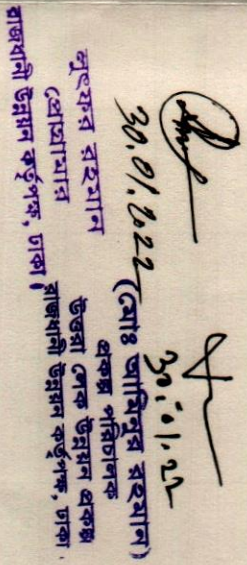 30.01.2022
লুৎফর রহমান
প্রোগ্রামার
রাজধানী উন্নয়ন কর্তৃপক্ষ, ঢাকা।
30.01.22
(মোঃ আমিনুর রহমান)
প্রকল্প পরিচালক
উত্তরা লেক উন্নয়ন প্রকল্প
রাজধানী উন্নয়ন কর্তৃপক্ষ, ঢাকা.